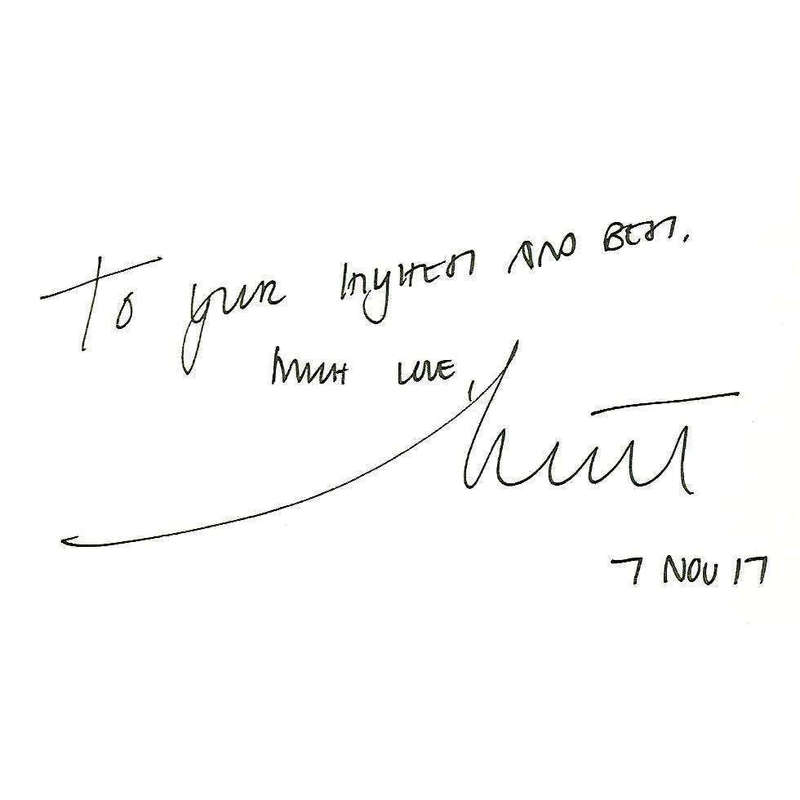 To your highest AND BEST.
MUCH LOVE,
7 NOV 17